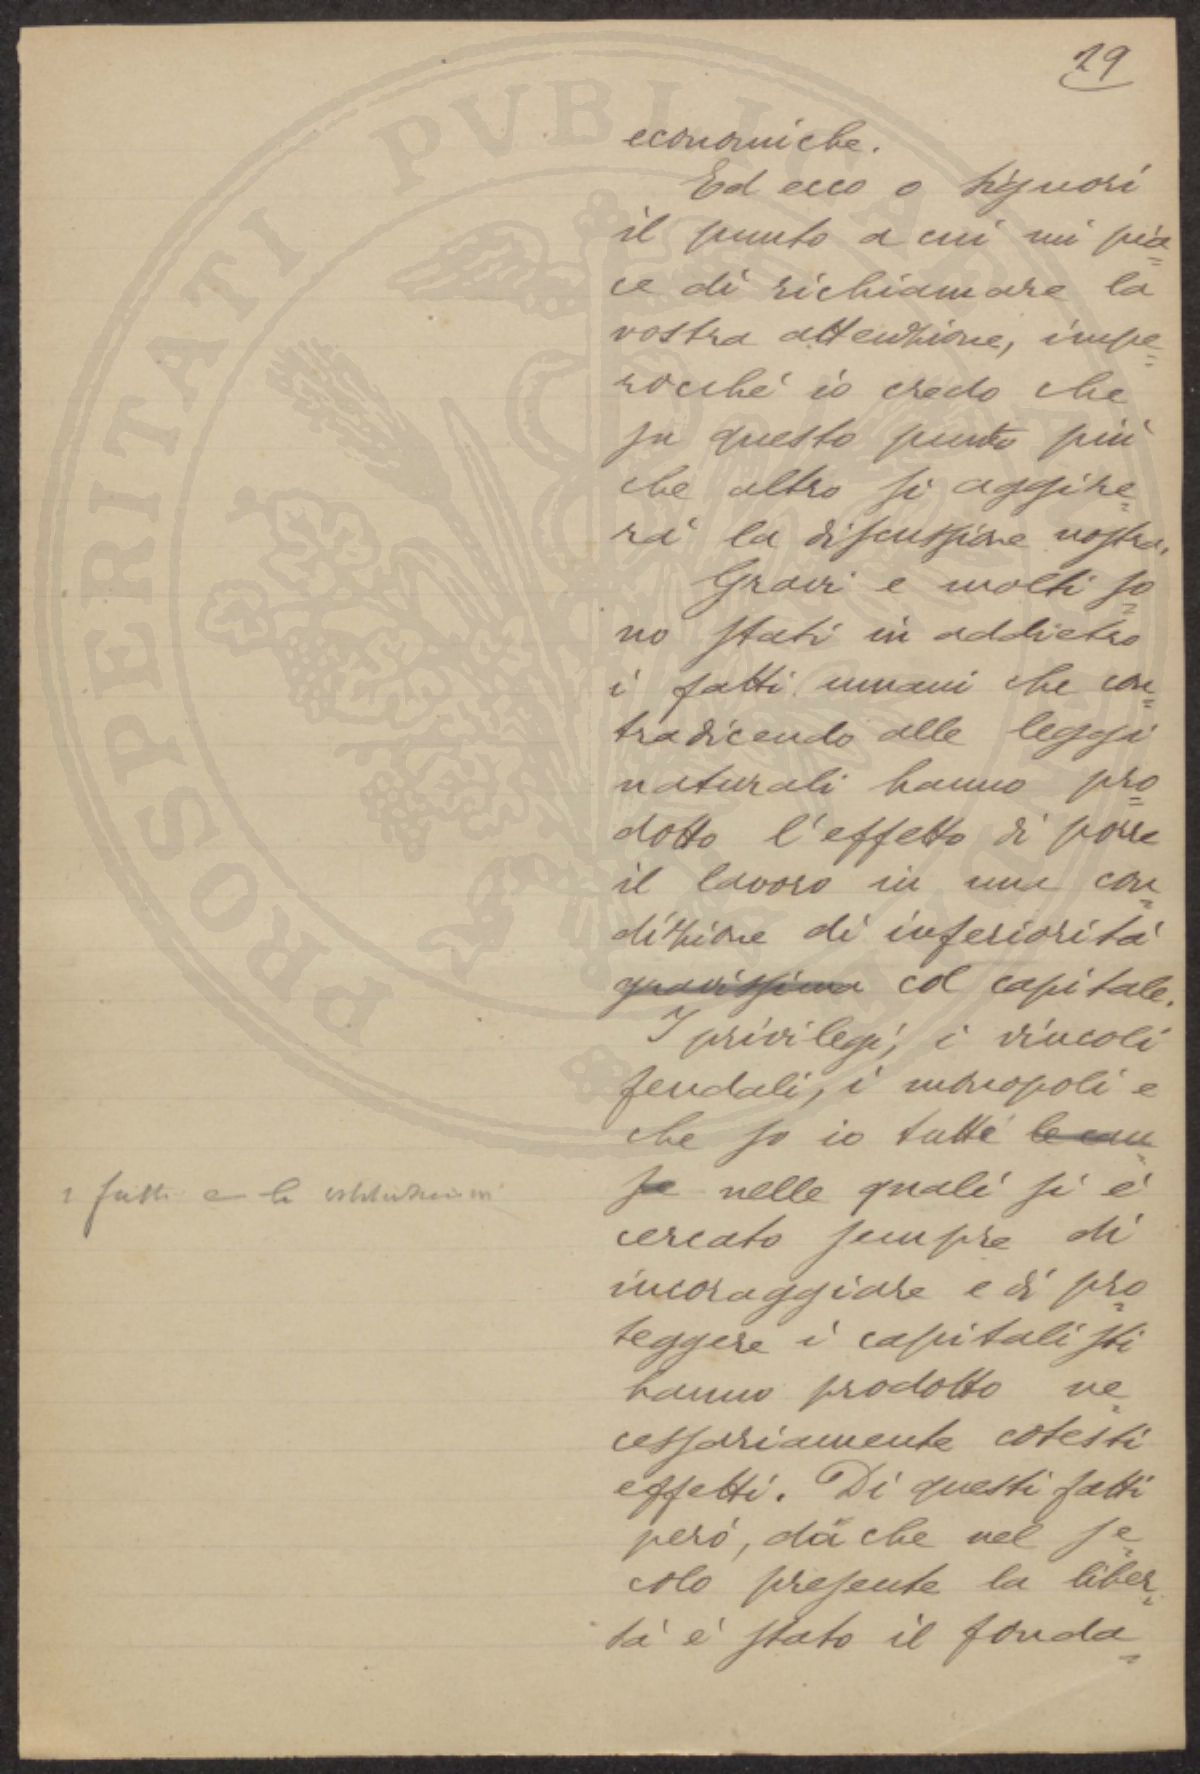 29
economiche.
Ed ecco o signori
il punto a cui mi pia=
ce di richiamare la
vostra attenzione, impe=
rocché io credo che
su questo punto più
che altro si aggire=
rà la discussione nostra.
Gravi e molti so=
no stati in addietro
i fatti umani che con=
tradicendo alle leggi
naturali hanno pro=
dotto l'effetto di porre
il lavoro in una con=
dizione di inferiorità
gravissima col capitale.
I privilegi, i vincoli
feudali, i monopoli e
che so io tutte le cau=
i fatti e le istituzioni
se nelle quali si è
cercato sempre di
incoraggiare e di pro=
teggere i capitalisti
hanno prodotto ne=
cessariamente cotesti
effetti. Di questi fatti
però, da che nel se=
colo presente la liber=
tà è stato il fonda=
PROSPERITATI PVBLICAE